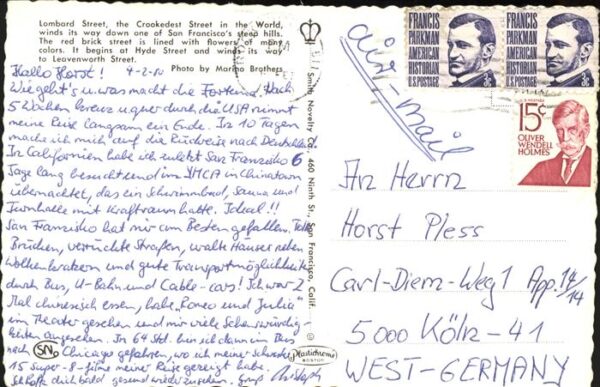 Lombard Street, the Crookedest Street in the World,
winds its way down one of San Francisco's steep hills.
The red brick street is lined with flowers of many
colors. It begins at Hyde Street and winds its way
to Leavenworth Street.
Photo by Marino Brothers
Hallo Horst! 4-2-80
Wie geht's u. was macht die Fortuna. Nach
5 Wochen kreuz u. quer durch die USA nimmt
meine Reise langsam ein Ende. In 10 Tagen
mache ich mich auf die Rückreise nach Deutschland.
In Californien habe ich zuletzt San Franzisko 6
Tage lang besucht und im YMCA in Chinatown
übernachtet, das ein Schwimmbad, Sauna und
Turnhalle mit Kraftraum hatte. Ideal!!
San Franzisko hat mir am Besten gefallen. Tolle
Brücken, verrückte Straßen, uralte Häuser neben
Wolkenkratzern und gute Transportmöglichkeiten
durch Bus, U-Bahn und Cable-cars! Ich war 2
Mal chinesisch essen, habe "Romeo und Julia"
im Theater gesehen und mir viele Sehenswürdig-
keiten angesehen. In 64 Std. bin ich dann im Bus
nach Chicago gefahren, wo ich meiner Schwester
15 Super-8-Filme meiner Reise gezeigt habe.
dich bald gesund wieder zu sehen. Gruß
SNC
Smith Novelty Co., 460 Ninth St., San Francisco, Calif.
Plastichrome
BOSTON
air-mail
FRANCIS
PARKMAN
AMERICAN
HISTORIAN
U.S. POSTAGE
3c
FRANCIS
PARKMAN
AMERICAN
HISTORIAN
U.S. POSTAGE
3c
U.S. POSTAGE
15c
OLIVER
WENDELL
HOLMES
An Herrn
Horst Pless
Carl-Diem-Weg 1 App. 14/14
5000 Köln-41
WEST-GERMANY